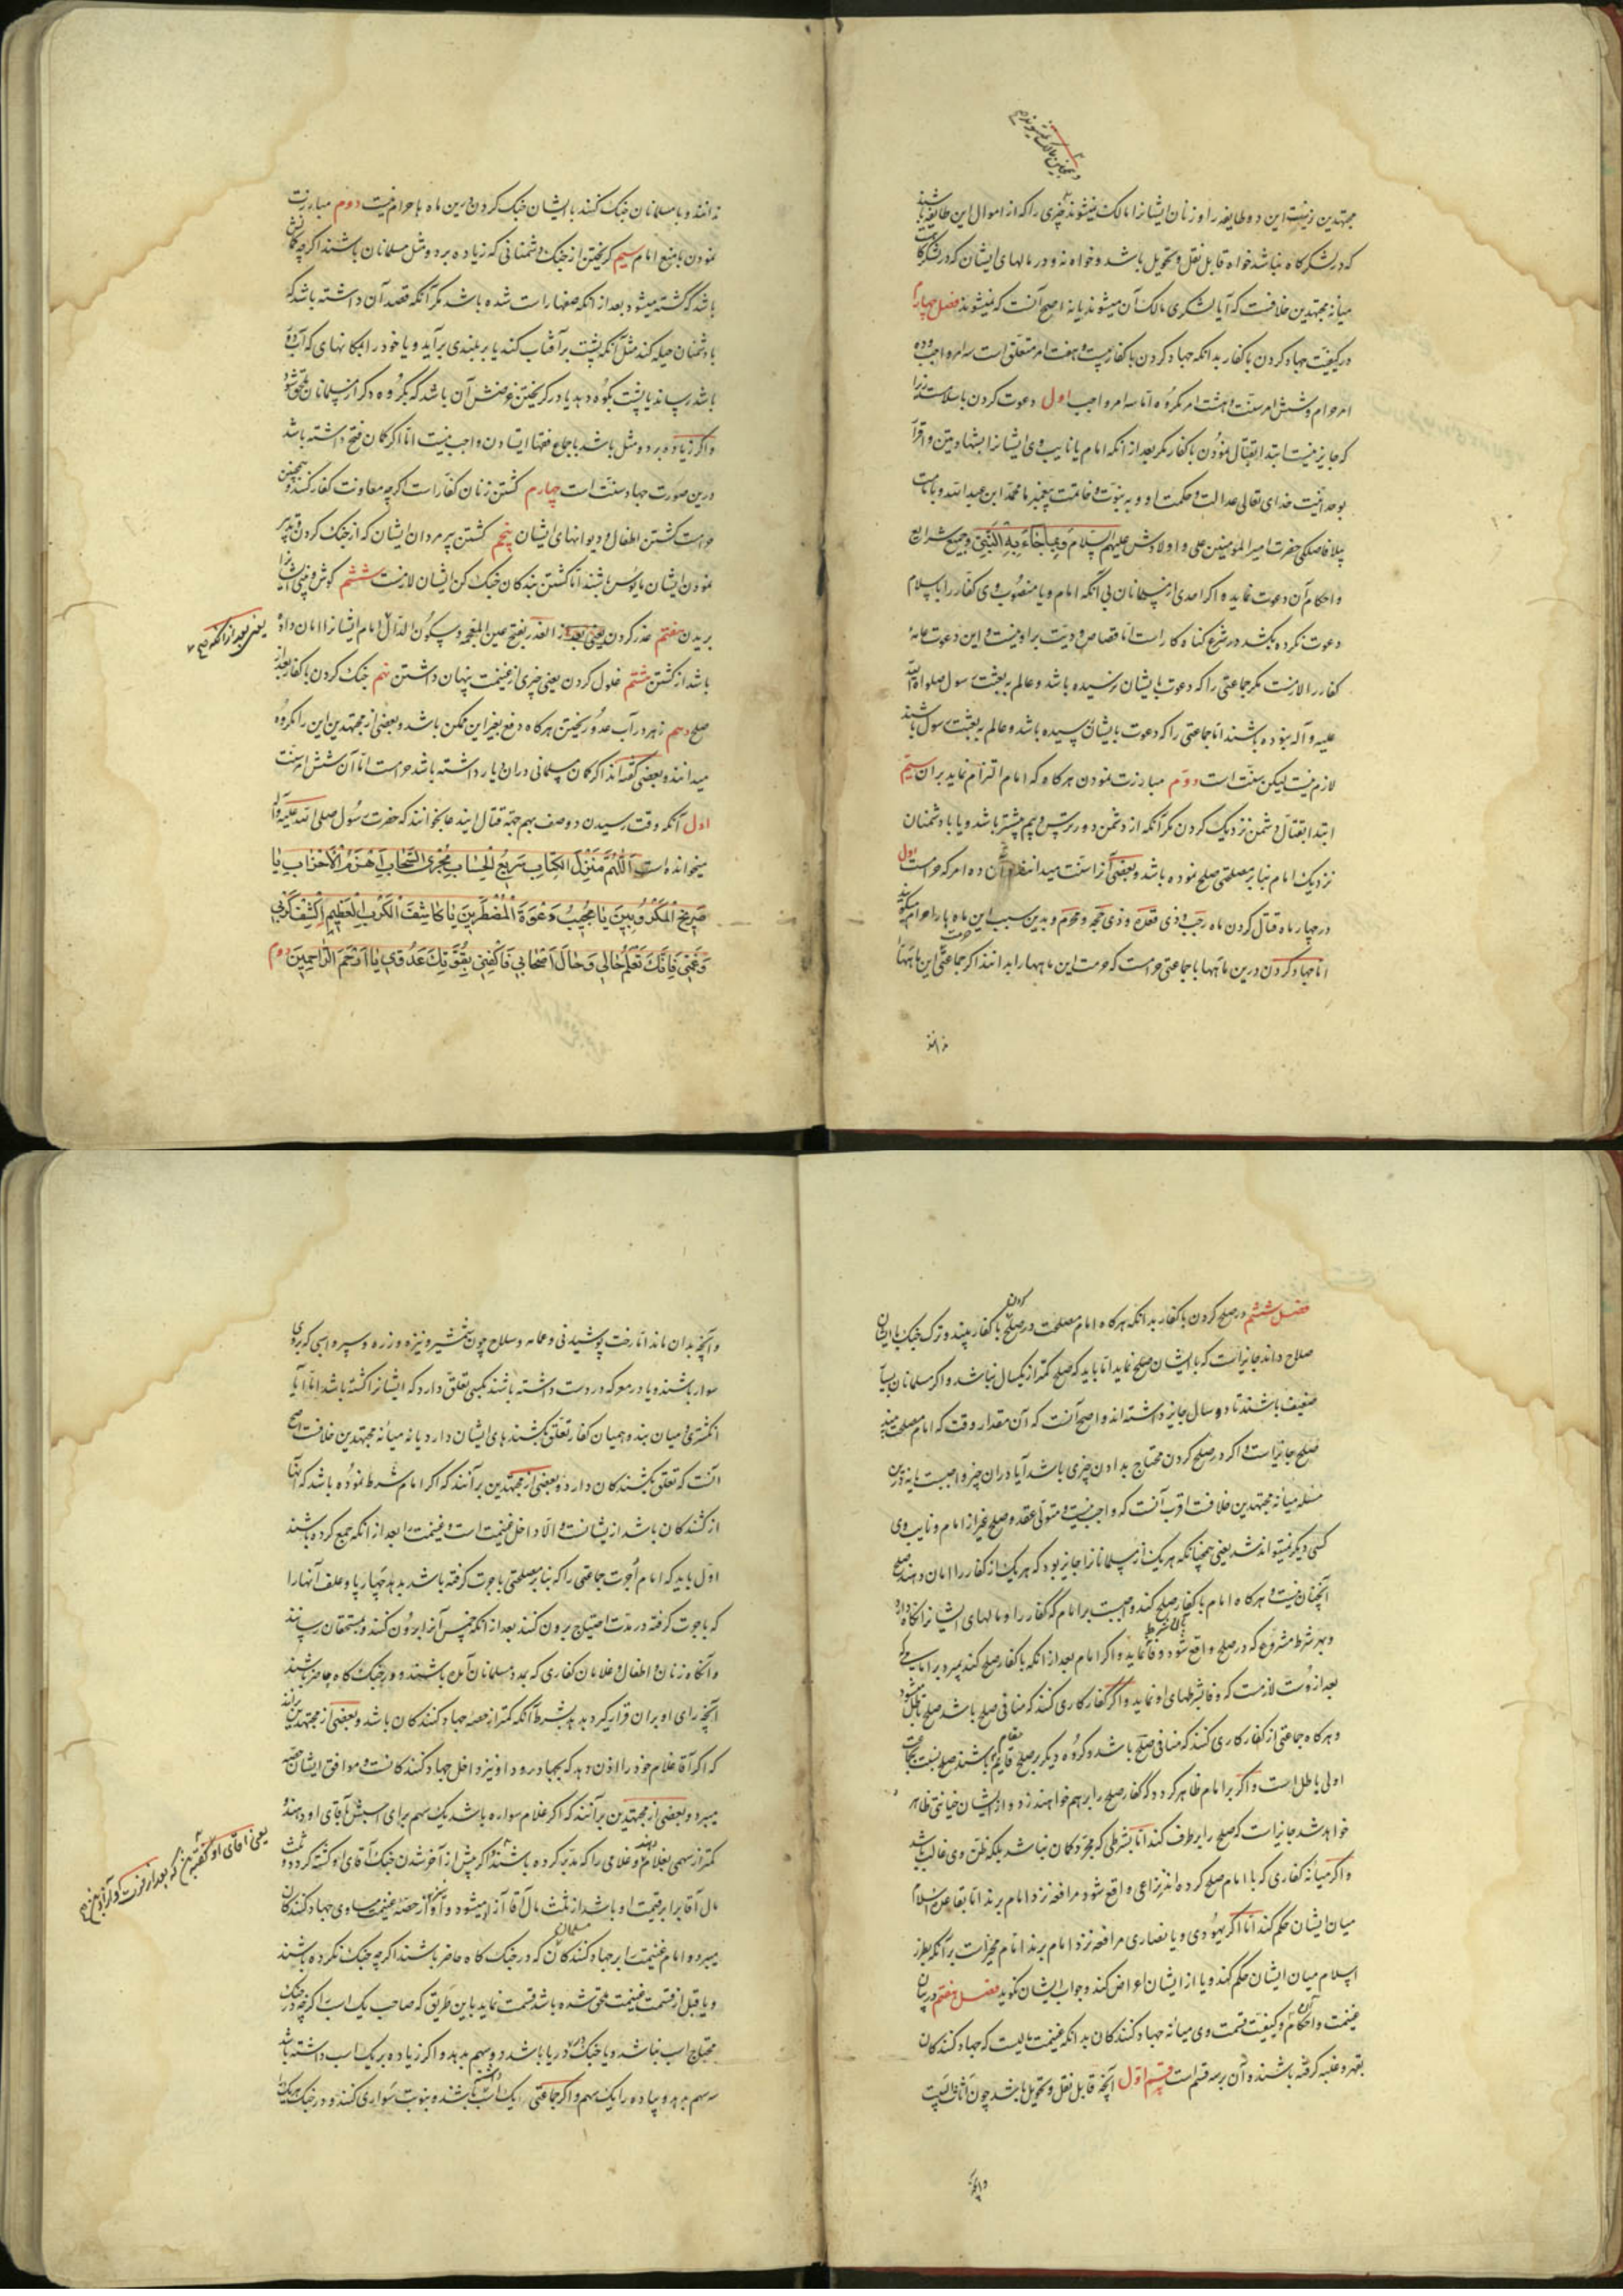 مجتهدین زینت این دو طایفه را و زنان ایشان را مالک نمیشوند چیزی را که از اموال این طایفه باشند
که در لشکرگاه نباشد خواه قابل نقل و تحویل باشد و خواه نه و در مالهای ایشان که در لشکرگاست
میانه مجتهدین خلافست که آیا لشکری مالک آن میشوند یا نه اصح آنست که نمیشوند فصل چهارم
در کیفیت جهاد کردن با کفار بدانکه جهاد کردن با کفار بیست و هفت امر متعلق است سه امر واجب و ده
امر حرام و شش امر سنت و هشت امر مکروه اما سه امر واجب اول دعوت کردن باسلام است زیرا
که جایز نیست ابتدا بقتال نمودن با کفار مگر بعد از آنکه امام یا نایب وی ایشان را بشهادتین و اقرار
بوحدانیت خدای تعالی و عدالت و حکمت او و به نبوت و خاتمت پیغمبر ما محمد ابن عبد الله و بامامت
بلا فاصلگی حضرت امیر المؤمنین علی و اولادش علیهم السلام و بما جاء به النبی و جمیع شرایع
و احکام آن دعوت نماید و اگر احدی از مسلمانان بی آنکه امام و یا منصوب وی کفار را باسلام
دعوت نکرده بکشد در شرع گناه کار است اما قصاص و دیت بر او نیست و این دعوت عامهٔ
کفار را لازمست مگر جماعتی را که دعوت بایشان نرسیده باشد و عالم به بعثت رسول صلوات الله
علیه و آله نبوده باشند اما جماعتی را که دعوت بایشان رسیده باشد و عالم به بعثت رسول باشند
لازم نیست لیکن سنت است دوم مبارزت نمودن هرگاه که امام التزام نماید بر آن سیم
ابتدا بقتال دشمن نزدیک کردن مگر آنکه از دشمن دورتر ترس و بیم بیشتر باشد و یا با دشمنان
نزدیک امام بنابر مصلحتی صلح نموده باشد و بعضی آنرا سنت میدانند و آن ده امر که حرامست اول
در چهار ماه قتال کردن ماه رجب و ذی قعده و ذی حجه و محرم و بدین سبب این ماه ها را حرام میگویند
اما جهاد کردن درین ماهها با جماعتی حرامست که حرمت این ماهها را بدانند اگر جماعتی حرمت این ماهها
ندانند
ندانند و با مسلمانان جنگ کنند با ایشان جنگ کردن درین ماه ها حرام نیست دوم مبارزت
نمودن با منع امام سیم گریختن از جنگ دشمنانی که زیاده بر دو مثل مسلمانان نباشند اگر چه گمانش
باشد که کشته میشود بعد از آنکه صفها راست شده باشد مگر آنکه قصد آن داشته باشد که
با دشمنان حیله کند مثل آنکه پشت بر آفتاب کند یا بر بلندی برآید و یا خود را بمکانهای که آب در او
باشد رساند یا پشت بکوه دهد یا در گریختن غرضش آن باشد که بگروه دگر از مسلمانان ملحق شود
و اگر زیاده بر دو مثل باشد باجماع فقها ایستادن واجب نیست اما اگر گمان فتح داشته باشد
درین صورت جهاد سنت است چهارم کشتن زنان کفار است اگر چه معاونت کفار کنند و همچنین
حرامست کشتن اطفال و دیوانهای ایشان پنجم کشتن پیر مردان ایشان که از جنگ کردن و تدبیر
نمودن ایشان مایوس باشند اما کشتن بندگان جنگ کن ایشان لازمست ششم گوش و بینی ایشان را
بریدن هفتم غدر کردن یعنی بعد از الغدر بفتح عین المعجمه و سکون الدال امام ایشان را امان داده
باشد از کشتن هشتم غلول کردن یعنی چیزی از غنیمت پنهان داشتن نهم جنگ کردن با کفار بعد از
صلح دهم زهر در آب عدو ریختن هرگاه دفع بغیر این ممکن باشد و بعضی از مجتهدین این را مکروه
میدانند و بعضی گفته‌اند اگر گمان مسلمانی در ان دیار داشته باشد حرامست اما آن شش امر سنت
اول آنکه وقت رسیدن دو صف بهم جهة قتال این دعا بخوانند که حضرت رسول صلی الله علیه و آله
میخوانده است اللهم منزل الکتاب سریع الحساب مجری السحاب اهزم الاحزاب یا
صریخ المکروبین یا مجیب دعوة المضطرین یا کاشف الکرب العظیم اکشف کربی
و غمی فانک تعلم حالی و حال اصحابی فاکفنی بقوتک عدوی یا ارحم الراحمین دوم
یعنی بعد از آنکه صح
فصل ششم در صلح کردن با کفار بدانکه هرگاه امام مصلحت در صلح کردن با کفار بیند و ترک جنگ با ایشان
صلاح داند جایز است که با ایشان صلح نماید اما باید که صلح کمتر از یکسال نباشد و اگر مسلمانان بسیار
ضعیف باشند تا دو سال جایز داشته‌اند و اصح آنست که آن مقدار وقت که امام مصلحت بیند
صلح جایز است و اگر در صلح کردن محتاج بدادن چیزی باشد آیا دادن آن چیز واجبست یا نه درین
مسئله میانه مجتهدین خلافست اقرب آنست که واجب نیست و متولی عقد و صلح غیر از امام و نایب وی
کسی دیگر نمیتواند شد یعنی همچنانکه هر یک از مسلمانان را جایز بود که هر یک از کفار را امان دهند صلح
آنچنان نیست و هرگاه امام با کفار صلح کند واجبست بر امام که کفار را و مالهای ایشان را نگاه دارد
و بهر شرط مشروع که در صلح واقع شود بآن شرط وفا نماید و اگر امام بعد از آنکه با کفار صلح کند بمیرد بر امامی که
بعد از اوست لازمست که وفا بشرطهای او نماید و اگر کفار کاری کنند که منافی صلح باشد صلح باطل شود
و هرگاه جماعتی از کفار کاری کنند که منافی صلح باشد و گروه دیگر بر صلح قایم باشند صلح نسبت بجماعت
اولی باطل است و اگر بر امام ظاهر گردد که کفار صلح را بر هم خواهند زد و از ایشان خیانتی ظاهر
خواهد شد جایز است که صلح را برطرف کند اما بشرطی که مجرد گمان نباشد بلکه ظن وی غالب باشد
و اگر میانه کفاری که با امام صلح کرده‌اند نزاعی واقع شود و مرافعه نزد امام برند امام بقاعده اسلام
میان ایشان حکم کند اما اگر یهودی و یا نصاری مرافعه نزد امام برند امام مخیر است بر آنکه بطرز
اسلام میان ایشان حکم کند و یا از ایشان اعراض کند و جواب ایشان نگوید فصل هفتم در بیان
غنیمت و احکام آن و کیفیت قسمت وی میانه جهاد کنندگان بدانکه غنیمت مالیست که جهاد کنندگان
بقهر و غلبه گرفته باشند و آن بر سه قسم است قسم اول آنچه قابل نقل و تحویل باشد چون اثاث البیت
و آنچه
و آنچه بدان ماند اما رخت پوشیدنی و عمامه و سلاح چون شمشیر و نیزه و زره و سپر و اسبی که بر وی
سوار باشند و یا در معرکه در دست داشته باشند بکسی تعلق دارد که ایشان را کشته باشد اما آیا
انگشتری و میان بند و همیان کفار تعلق بکشندهای ایشان دارد یا نه میانه مجتهدین خلافست اصح
آنست که تعلق بکشندگان دارد و بعضی از مجتهدین برآنند که اگر امام شرط نموده باشد که آنها
از کشندگان باشد از ایشانست و الا داخل غنیمت است و غنیمت را بعد از آنکه جمع کرده باشند
اول باید که امام اجرت جماعتی را که بنابر مصلحتی باجرت گرفته باشد بدهد و چهارپا و علف آنها را
که باجرت گرفته در مدت احتیاج برون کنند بعد از آنکه خمس آنرا برون کنند و بمستحقان رسانند
و آنگاه زنان و اطفال و غلامان کفاری که بمدد مسلمانان آمده باشند و در جنگ گاه حاضر باشند
آنچه رای او بران قرار گیرد بدهد بشرط آنکه کمتر از حصهٔ جهاد کنندگان باشد و بعضی از مجتهدین برآنند
که اگر آقا غلام خود را اذن دهد که بجهاد رود او نیز داخل جهاد کنندگانست و موافق ایشان حصه
میبرد و بعضی از مجتهدین برآنند که اگر غلام سواره باشد یک سهم برای اسبش بآقای او دهند و
کمتر از سهمی بغلام دهند و غلامی را که مدبر کرده باشند اگر پیش از آخر شدن جنگ آقای او کشته گردد و ثلث
مال آقا برابر قیمت او باشد از ثلث مال آقا آزاد میشود و از حصه غنیمت مساوی جهاد کنندگان
میبرد و امام غنیمت را بر جهاد کنندگان مسلمان که در جنگ گاه حاضر باشند اگر چه جنگ نکرده باشند
و یا قبل از قسمت غنیمت ملحق شده باشد قسمت نماید باین طریق که صاحب یک اسب را اگر چه در جنگ
محتاج اسب نباشد و یا جنگ در دریا باشد دو سهم بدهد و اگر زیاده بر یک اسب داشته باشد
سه سهم بدهد و پیاده را یک سهم و اگر جماعتی یک اسب داشته باشند و بنوبت سواری کنند و در جنگ هر یک